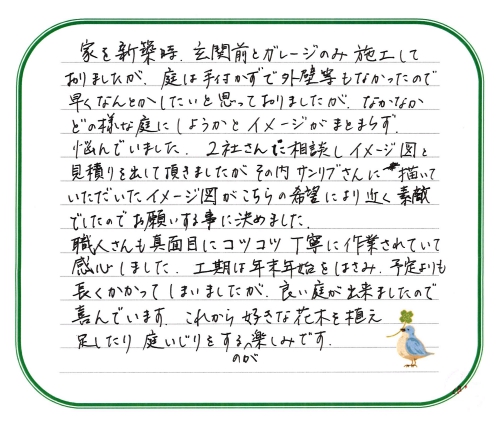 家を新築時、玄関前とガレージのみ施工して
おりましたが、庭は手付かずで外壁等もなかったので
早くなんとかしたいと思っておりましたが、なかなか
どの様な庭にしようかとイメージがまとまらず、
悩んでいました。2社さんに相談しイメージ図と
見積りを出して頂きましたがその内サンリブさんに描いて
いただいたイメージ図がこちらの希望により近く素敵
でしたのでお願いする事に決めました。
職人さんも真面目にコツコツ丁寧に作業されていて
感心しました。工期は年末年始をはさみ、予定よりも
長くかかってしまいましたが、良い庭が出来ましたので
喜んでいます。これから好きな花木を植え
足したり庭いじりをするのが楽しみです。